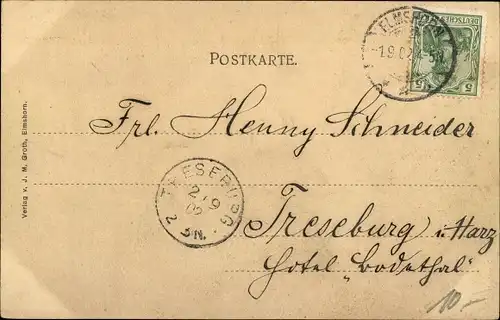 POSTKARTE.
ELMSHORN
1.9.02
DEUTSCHES
5 5
Frl. Henny Schneider
TRESEBURG
2 9
02
N.
Treseburg i. Harz
Hotel „Bodethal"
10.-
Verlag v. J. M. Groth, Elmshorn.